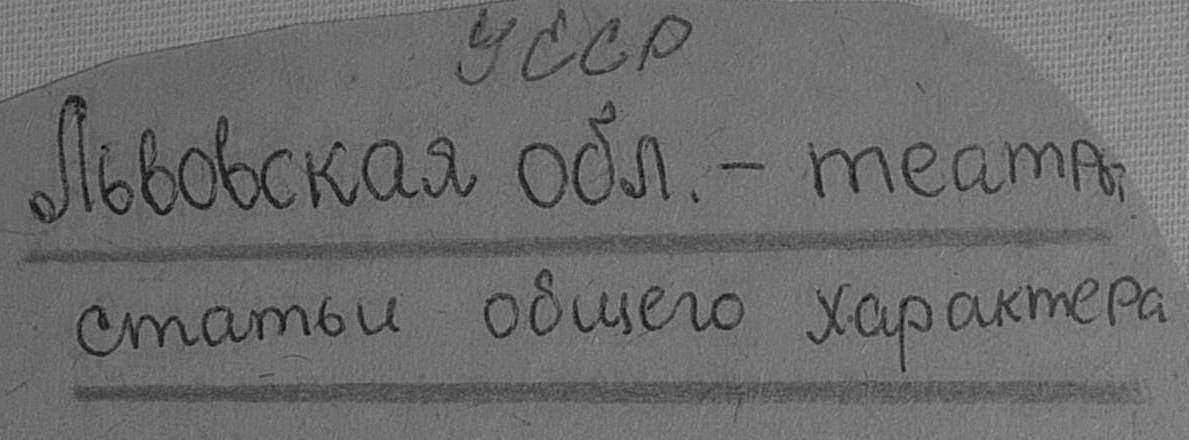 УССР
Львовская обл. - театры
статьи общего характера